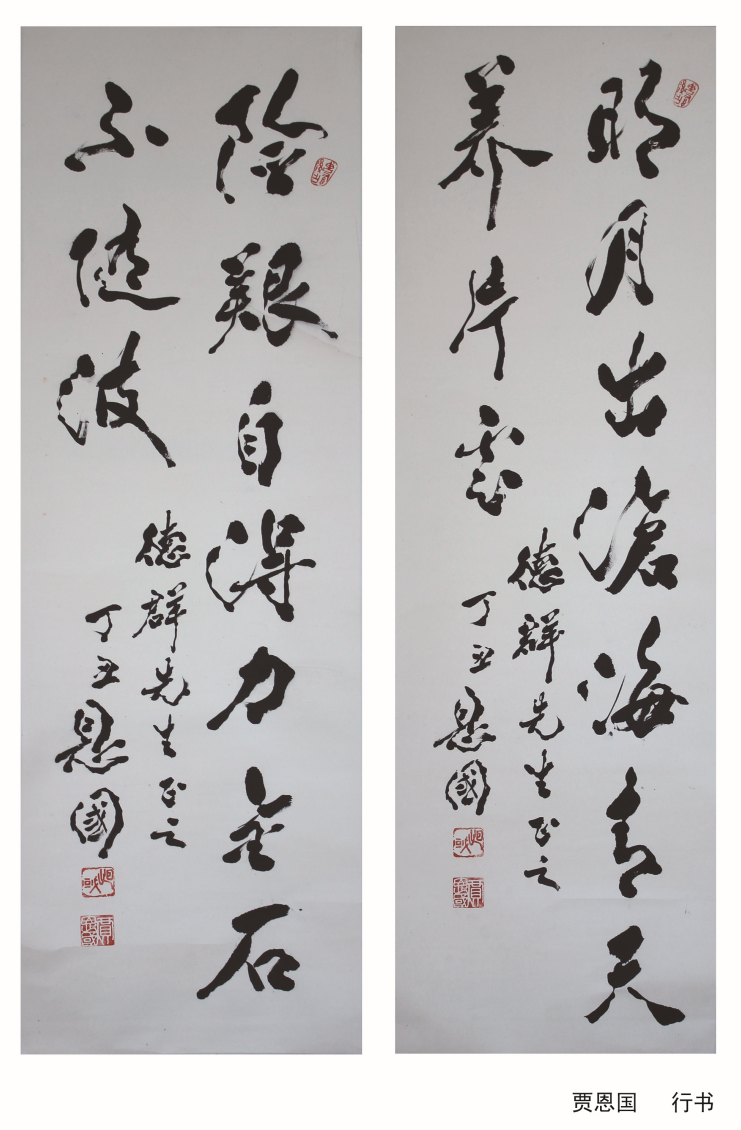 明月出滄海青天
養片雲
德群先生正之
丁丑恩國
險艱自得力金石
不隨波
德群先生正之
丁丑恩國
贾恩国 行书